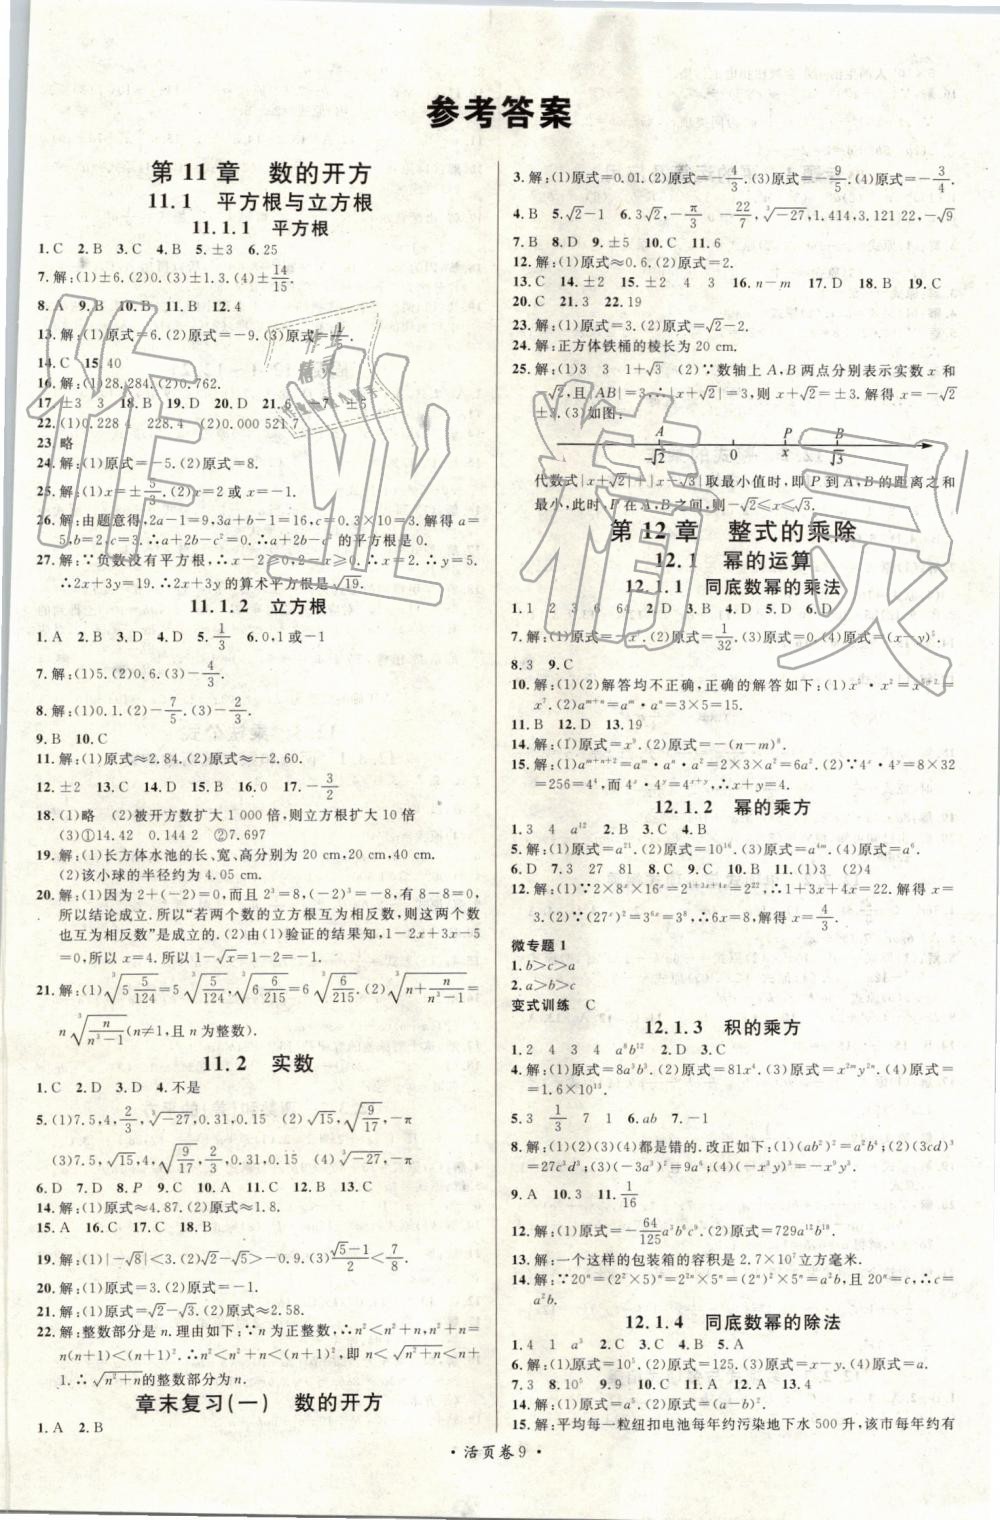 参考答案
第11章 数的开方
11.1 平方根与立方根
11.1.1 平方根
1.C 2.B 3.C 4.B 5.±3 6.25
7.解:(1)±6.(2)0.(3)±1.3.(4)±14/15.
8.A 9.B 10.B 11.B 12.4
13.解:(1)原式=6.(2)原式=-9.(3)原式=
14.C 15.40
16.解:(1)28.284.(2)0.762.
17.±3 3 18.B 19.D 20.D 21.6 -7 ±5
22.(1)0.228 4 228.4 (2)0.000 521 7
23.略
24.解:(1)原式=-5.(2)原式=8.
25.解:(1)x=±5/3.(2)x=2或x=-1.
26.解:由题意得,2a-1=9,3a+b-1=16,c=0.3×10=3.解得a=
5,b=2,c=3.∴a+2b-c=6.∴a+2b-c的算术平方根为√6.
27.解:∵负数没有平方根,∴
∴2x+3y=19.∴2x+3y的算术平方根是√19.
11.1.2 立方根
1.A 2.B 3.D 4.D 5.1/3 6.0,1或-1
7.解:(1)5.(2)0.6.(3)-4/3.
8.解:(1)0.1.(2)-7/5.(3)-2/3.
9.B 10.C
11.解:(1)原式≈2.84.(2)原式≈-2.60.
12.±2 13.C 14.D 15.B 16.0 17.-3/2
18.(1)略 (2)被开方数扩大1 000倍,则立方根扩大10倍
(3)①14.42 0.144 2 ②7.697
19.解:(1)长方体水池的长、宽、高分别为20 cm,20 cm,40 cm.
(2)该小球的半径约为4.05 cm.
20.解:(1)因为2+(-2)=0,而且2³=8,(-2)³=-8,有8-8=0,
所以结论成立.所以“若两个数的立方根互为相反数,则这两个数
也互为相反数”是成立的.(2)由(1)验证的结果知,1-2x+3x-5
=0,所以x=4.所以1-√x=1-2=-1.
21.解:(1)∛(5 5/124)=5∛(5/124),∛(6 6/215)=6∛(6/215).(2)∛(n+n/(n³-1))=
n∛(n/(n³-1))(n≠1,且n为整数).
11.2 实数
1.C 2.D 3.D 4.不是
5.(1)7.5,4,2/3,∛-27,0.31,0.15 (2)√15,√(9/17),-π
(3)7.5,√15,4,√(9/17),2/3,0.31,0.15 (4)∛-27,-π
6.D 7.D 8.P 9.C 10.A 11.D 12.B 13.C
14.解:(1)原式≈4.87.(2)原式≈1.8.
15.A 16.C 17.C 18.B
19.解:(1)|-√8|<3.(2)√2-√5>-0.9.(3)(√5-1)/2<7/8.
20.解:(1)原式=3.(2)原式=-1.
21.解:(1)原式=√2-√3.(2)原式≈2.58.
22.解:整数部分是n.理由如下:∵n为正整数,∴n²<n²+n,n²+n=
n(n+1)<(n+1)².∴n²<n²+n<(n+1)²,即n<√(n²+n)<n+
1.∴√(n²+n)的整数部分为n.
章末复习(一) 数的开方
1.A 2.B
3.解:(1)原式=0.01.(2)原式=-4/3.(3)原式=-9/5.(4)原式=-3/4.
4.B 5.√2-1 6.3√2,-π/3 -22/7,∛-27,1.414,3.121 22,-√9
7.B 8.D 9.±5 10.C 11.6
12.解:(1)原式≈0.6.(2)原式=2.
13.C 14.±2 15.±2 4 3 16.n-m 17.D 18.B 19.C
20.C 21.3 22.19
23.解:(1)原式=3.(2)原式=√2-2.
24.解:正方体铁桶的棱长为20 cm.
25.解:(1)3 3 1+√3 (2)∵数轴上A,B两点分别表示实数x和
-√2,且|AB|=3,∴|x+√2|=3,则x+√2=±3.解得x=-√2
±3.(3)如图.
A P B
-√2 0 x √3
代数式|x+√2|+|x-√3|取最小值时,即P到A,B的距离之和
最小,此时P在A,B之间,则-√2≤x≤√3.
第12章 整式的乘除
12.1 幂的运算
12.1.1 同底数幂的乘法
1.1 2 3 6 64 2.D 3.D 4.D 5.D 6.D
7.解:(1)原式=-x⁷.(2)原式=1/32.(3)原式=0.(4)原式=(x-y)⁵.
8.3 9.C
10.解:(1)(2)解答均不正确,正确的解答如下:(1)x⁵·x²=x⁵⁺²=
x⁷.(2)aᵐ⁺ⁿ=aᵐ·aⁿ=3×5=15.
11.B 12.D 13.19
14.解:(1)原式=x⁹.(2)原式=-(n-m)⁸.
15.解:(1)aᵐ⁺ⁿ⁺²=aᵐ·aⁿ·a²=2×3×a²=6a².(2)∵4ˣ·4ʸ=8×32
=256=4⁴,而4ˣ·4ʸ=4ˣ⁺ʸ,∴x+y=4.
12.1.2 幂的乘方
1.3 4 a¹² 2.B 3.C 4.B
5.解:(1)原式=a²¹.(2)原式=10¹⁶.(3)原式=a⁴ᵐ.(4)原式=a⁶.
6.D 7.3 27 81 8.C 9.C 10.B 11.(1)3 (2)4
12.解:(1)∵2×8ˣ×16ˣ=2¹⁺³ˣ⁺⁴ˣ=2²²,∴1+3x+4x=22.解得x=
3.(2)∵(27ˣ)²=3⁶ˣ=3⁸,∴6x=8,解得x=4/3.
微专题1
1.b>c>a
2.a>b>c
变式训练 C
12.1.3 积的乘方
1.2 4 3 4 a⁸b¹² 2.D 3.C
4.解:(1)原式=8a³b³.(2)原式=81x⁴.(3)原式=x²ᵐy²ⁿ.(4)原式
=1.6×10¹³.
5.3 1/3 7 1 6.ab 7.-1
8.解:(1)(2)(3)(4)都是错的.改正如下:(1)(ab²)²=a²b⁴;(2)(3cd)³
=27c³d³;(3)(-3a³)²=9a⁶;(4)(-x³y)³=-x⁹y³.
9.A 10.3 11.1/16
12.解:(1)原式=-64/125a³b⁶c⁹.(2)原式=729a¹²b¹⁸.
13.解:一个这样的包装箱的容积是2.7×10⁷立方毫米.
14.解:∵20ⁿ=(2²×5)ⁿ=2²ⁿ×5ⁿ=(2ⁿ)²×5ⁿ=a²b,且20ⁿ=c,∴c=
a²b.
12.1.4 同底数幂的除法
1.4 1 a³ 2.C 3.C 4.B 5.A
6.解:(1)原式=10⁵.(2)原式=125.(3)原式=x-y.(4)原式=a.
7.3 8.10⁵ 9.9 10.C 11.A 12.A 13.4
14.解:(1)原式=x⁵.(2)原式=a-b.
15.解:平均每一粒纽扣电池每年约污染地下水500升,该市每年约有
·活页卷9·
作业精灵